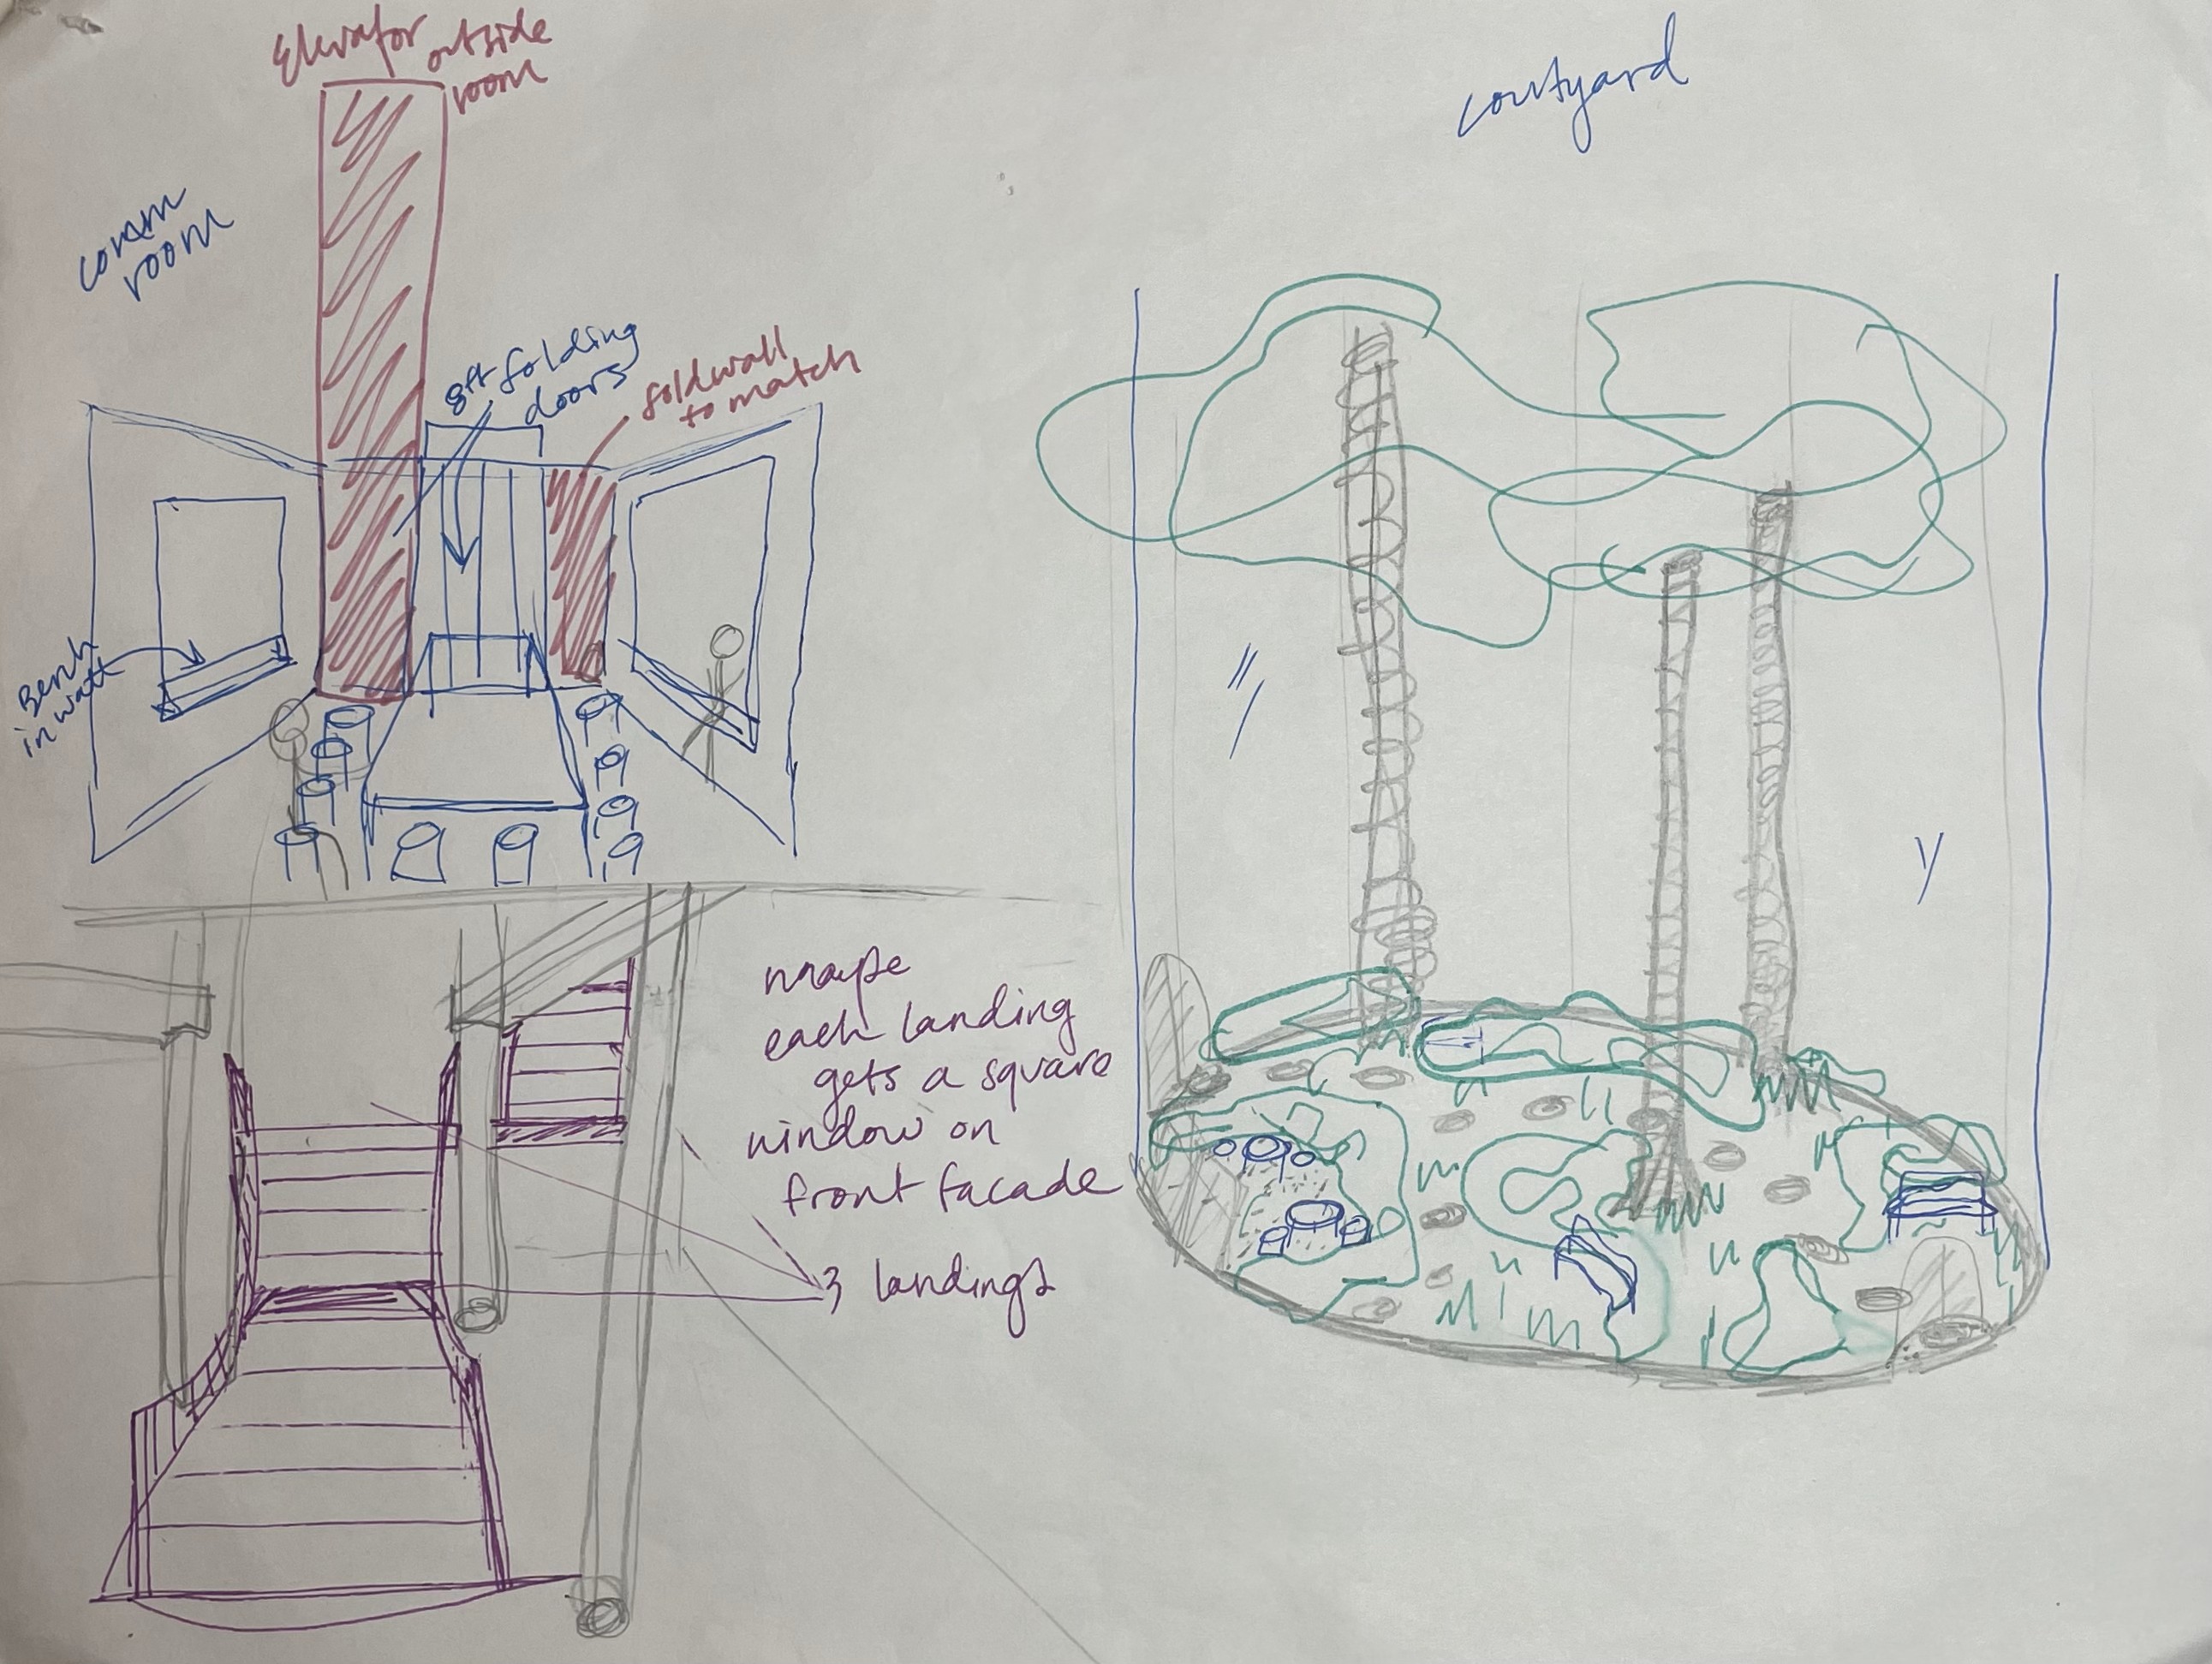 Elevator outside
room
comm
room
8ft folding
doors
solid wall
to match
Bench
in wall
maybe
each landing
gets a square
window on
front facade
3 landings
courtyard